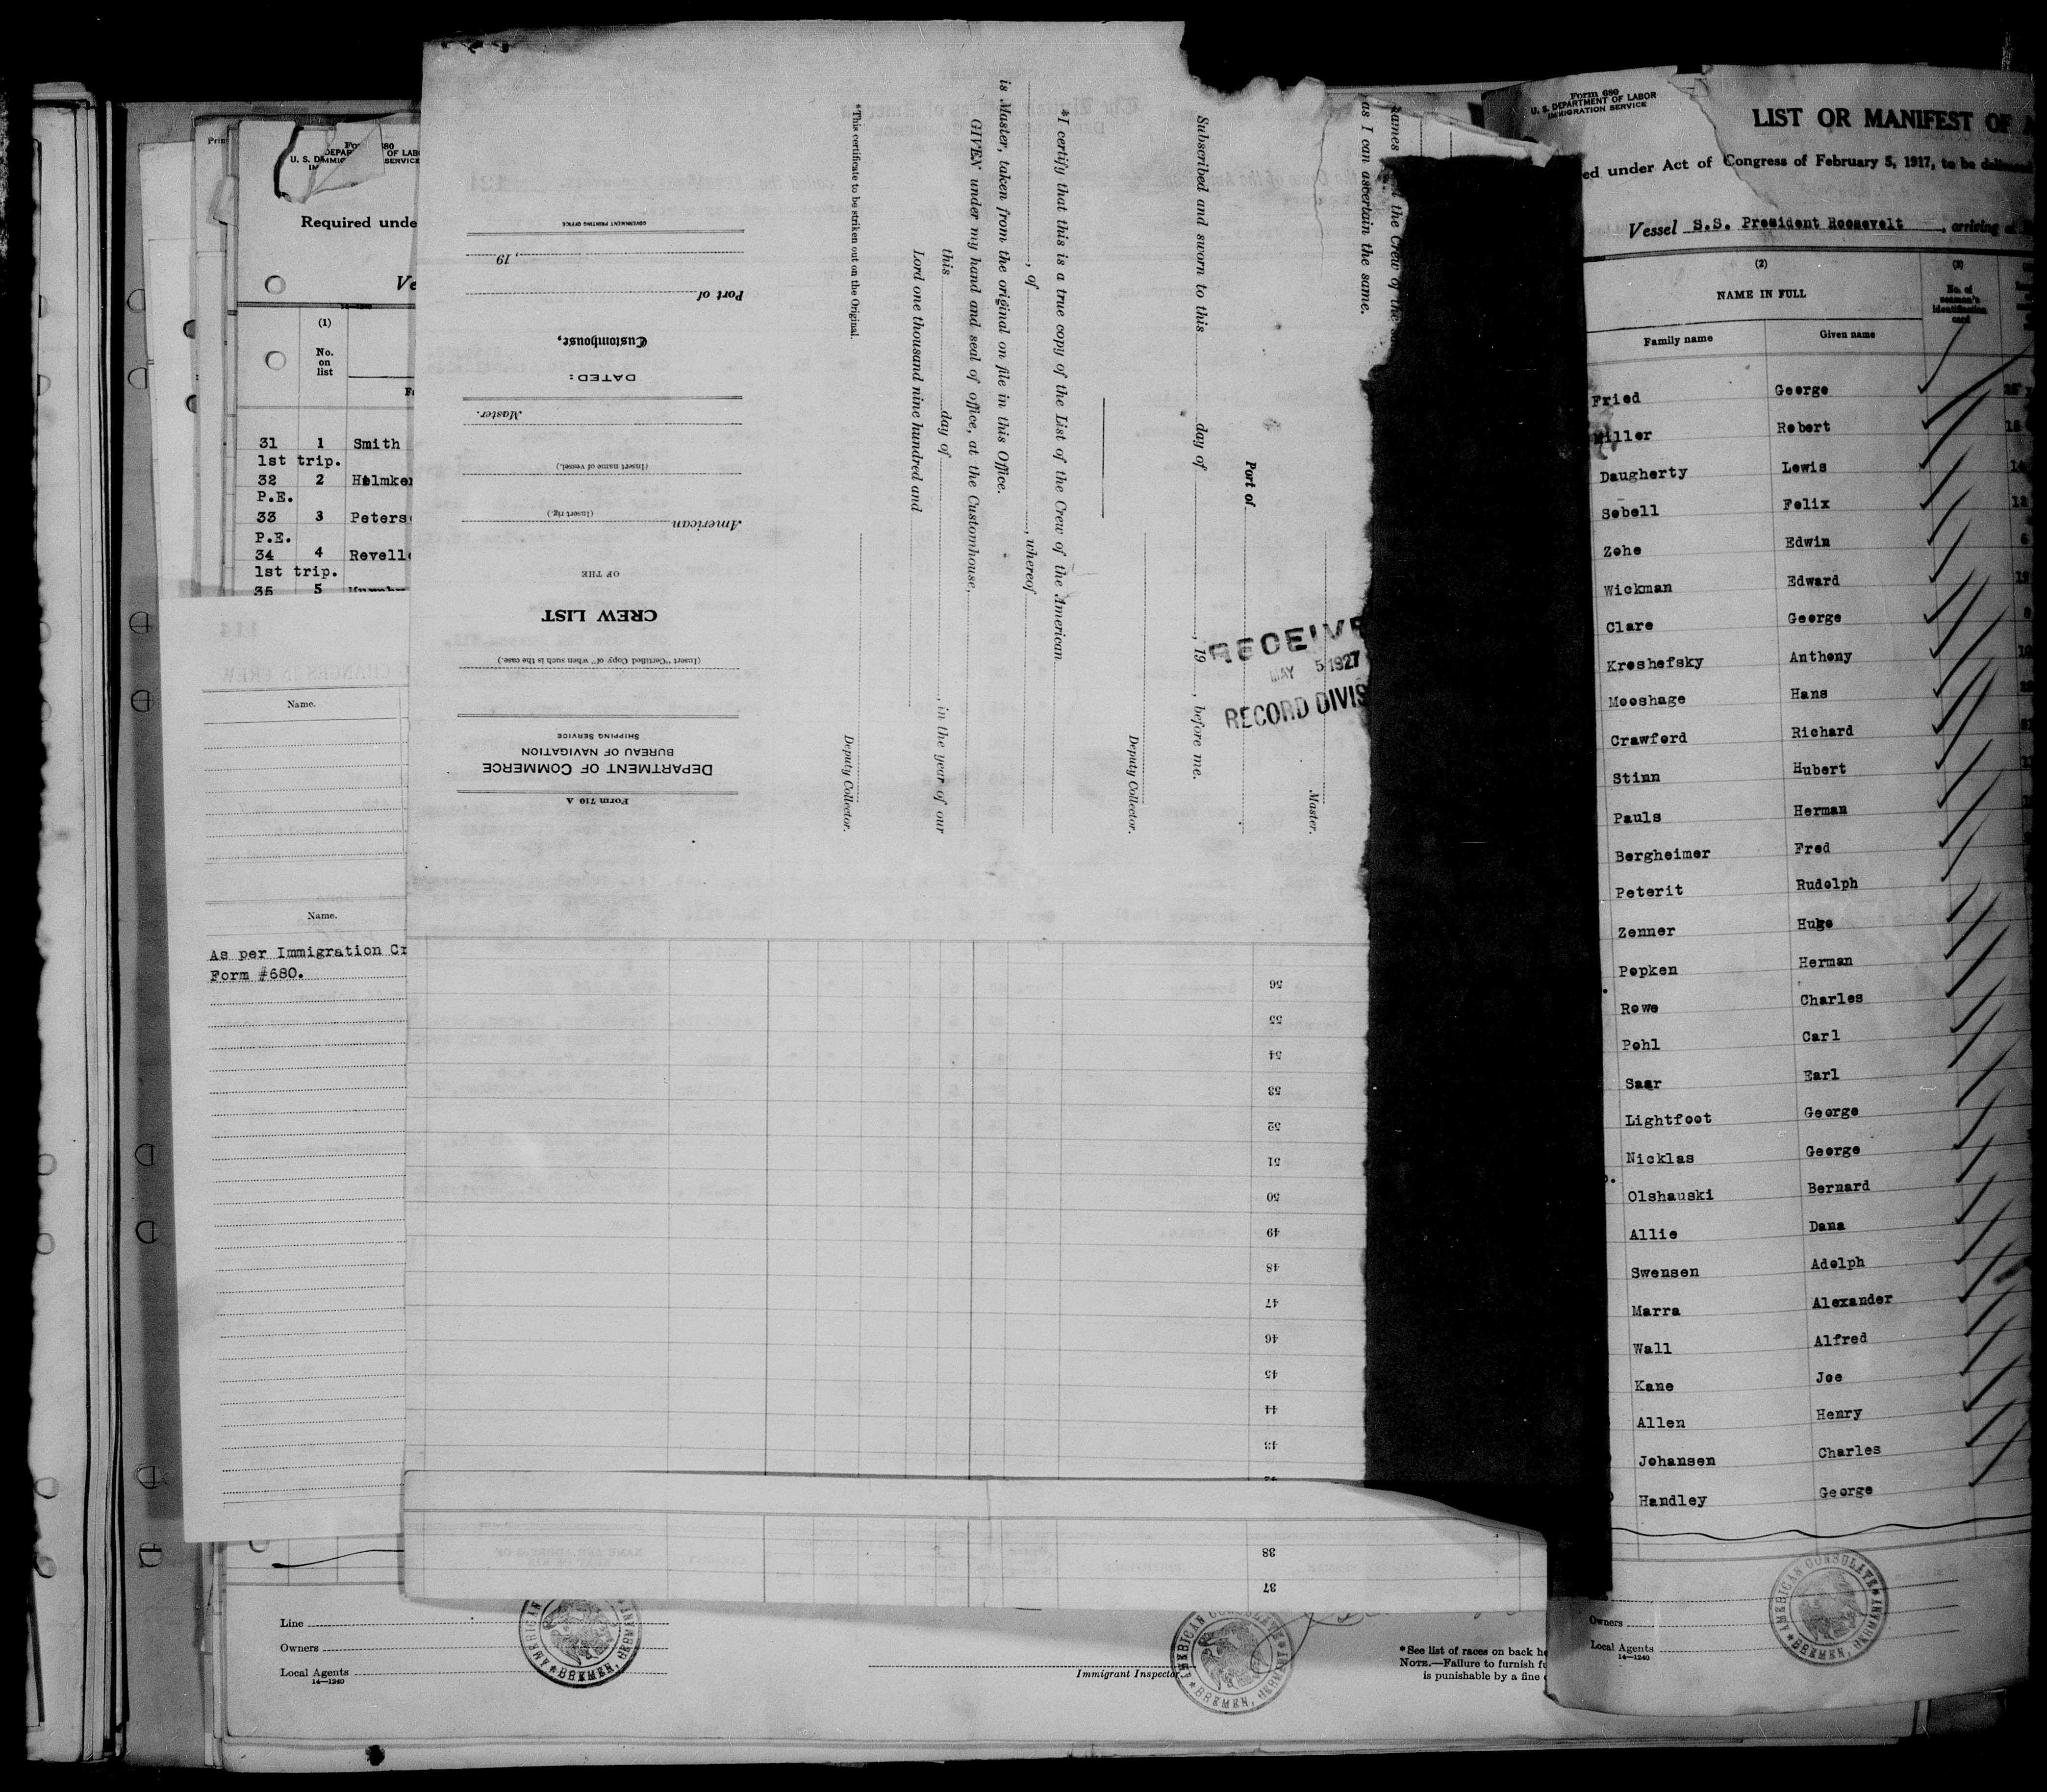 Form 680
U. S. DEPARTMENT OF LABOR
IMMIGRATION SERVICE
LIST OR MANIFEST OF
under Act of Congress of February 5, 1917, to be
Vessel S.S. President Roosevelt, arriving
(2)
(3)
NAME IN FULL
No. of seaman's identification card
Family name
Given name
Fried George
Miller Robert
Daugherty Lewis
Sebell Felix
Zehe Edwin
Wickman Edward
Clare George
Kreshefsky Anthony
Mooshage Hans
Crawford Richard
Stinn Hubert
Pauls Herman
Bergheimer Fred
Peterit Rudolph
Zenner Hugo
Popken Herman
Rowe Charles
Pohl Carl
Saar Earl
Lightfoot George
Nicklas George
Olshauski Bernard
Allie Dana
Swensen Adolph
Marra Alexander
Wall Alfred
Kane Joe
Allen Henry
Johansen Charles
Handley George
AMERICAN CONSULATE
BREMEN, GERMANY
Owners
Local Agents
14—1240
Required unde
(1)
No. on list
31 1 Smith
1st trip.
32 2
P.E.
33 3 Peters
P.E.
34 4 Revell
1st trip.
35 5
Name.
Name.
As per Immigration
Form #680.
Line
Owners
Local Agents
14—1240
Immigrant Inspector.
*See list of races on back
NOTE.—Failure to furnish
is punishable by a fine
Form 710 A
DEPARTMENT OF COMMERCE
BUREAU OF NAVIGATION
SHIPPING SERVICE
(Insert "Certified Copy of" when such is the case.)
CREW LIST
OF THE
American
(Insert rig.)
(Insert name of vessel.)
Master.
DATED:
Customhouse,
Port of
, 19
GOVERNMENT PRINTING OFFICE
the Crew of the
as I can ascertain the same.
Master.
Port of
Subscribed and sworn to this day of , 19 , before me.
Deputy Collector.
*I certify that this is a true copy of the List of the Crew of the American
, of , whereof
is Master, taken from the original on file in this Office.
GIVEN under my hand and seal of office, at the Customhouse,
this day of , in the year of our
Lord one thousand nine hundred and
Deputy Collector.
*This certificate to be striken out on the Original.
MAY 5 1927
RECORD
56
55
54
53
52
51
50
49
48
47
46
45
44
43
38
37